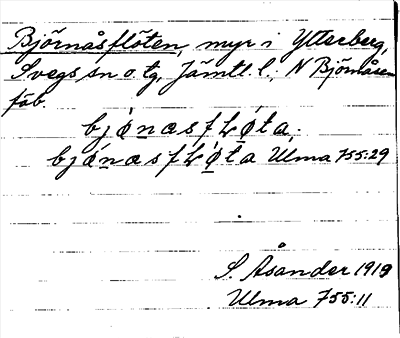 Björnåsflöten, myr i Ytterberg,
Svegs sn o. tg, Jämtl. l.; N Björnåsen
fäb.
bjǿnasfLǿta;
bjǿnasfLǿta Ulma 755:29
S. Åsander 1919
Ulma 755:11